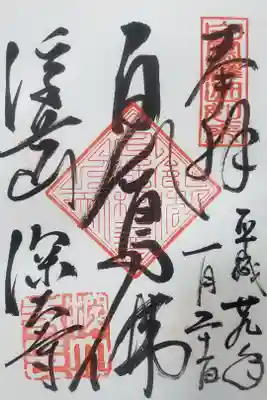 奉拝
平成廿九年
一月二十日
白鳳佛
浮岳山 深大寺